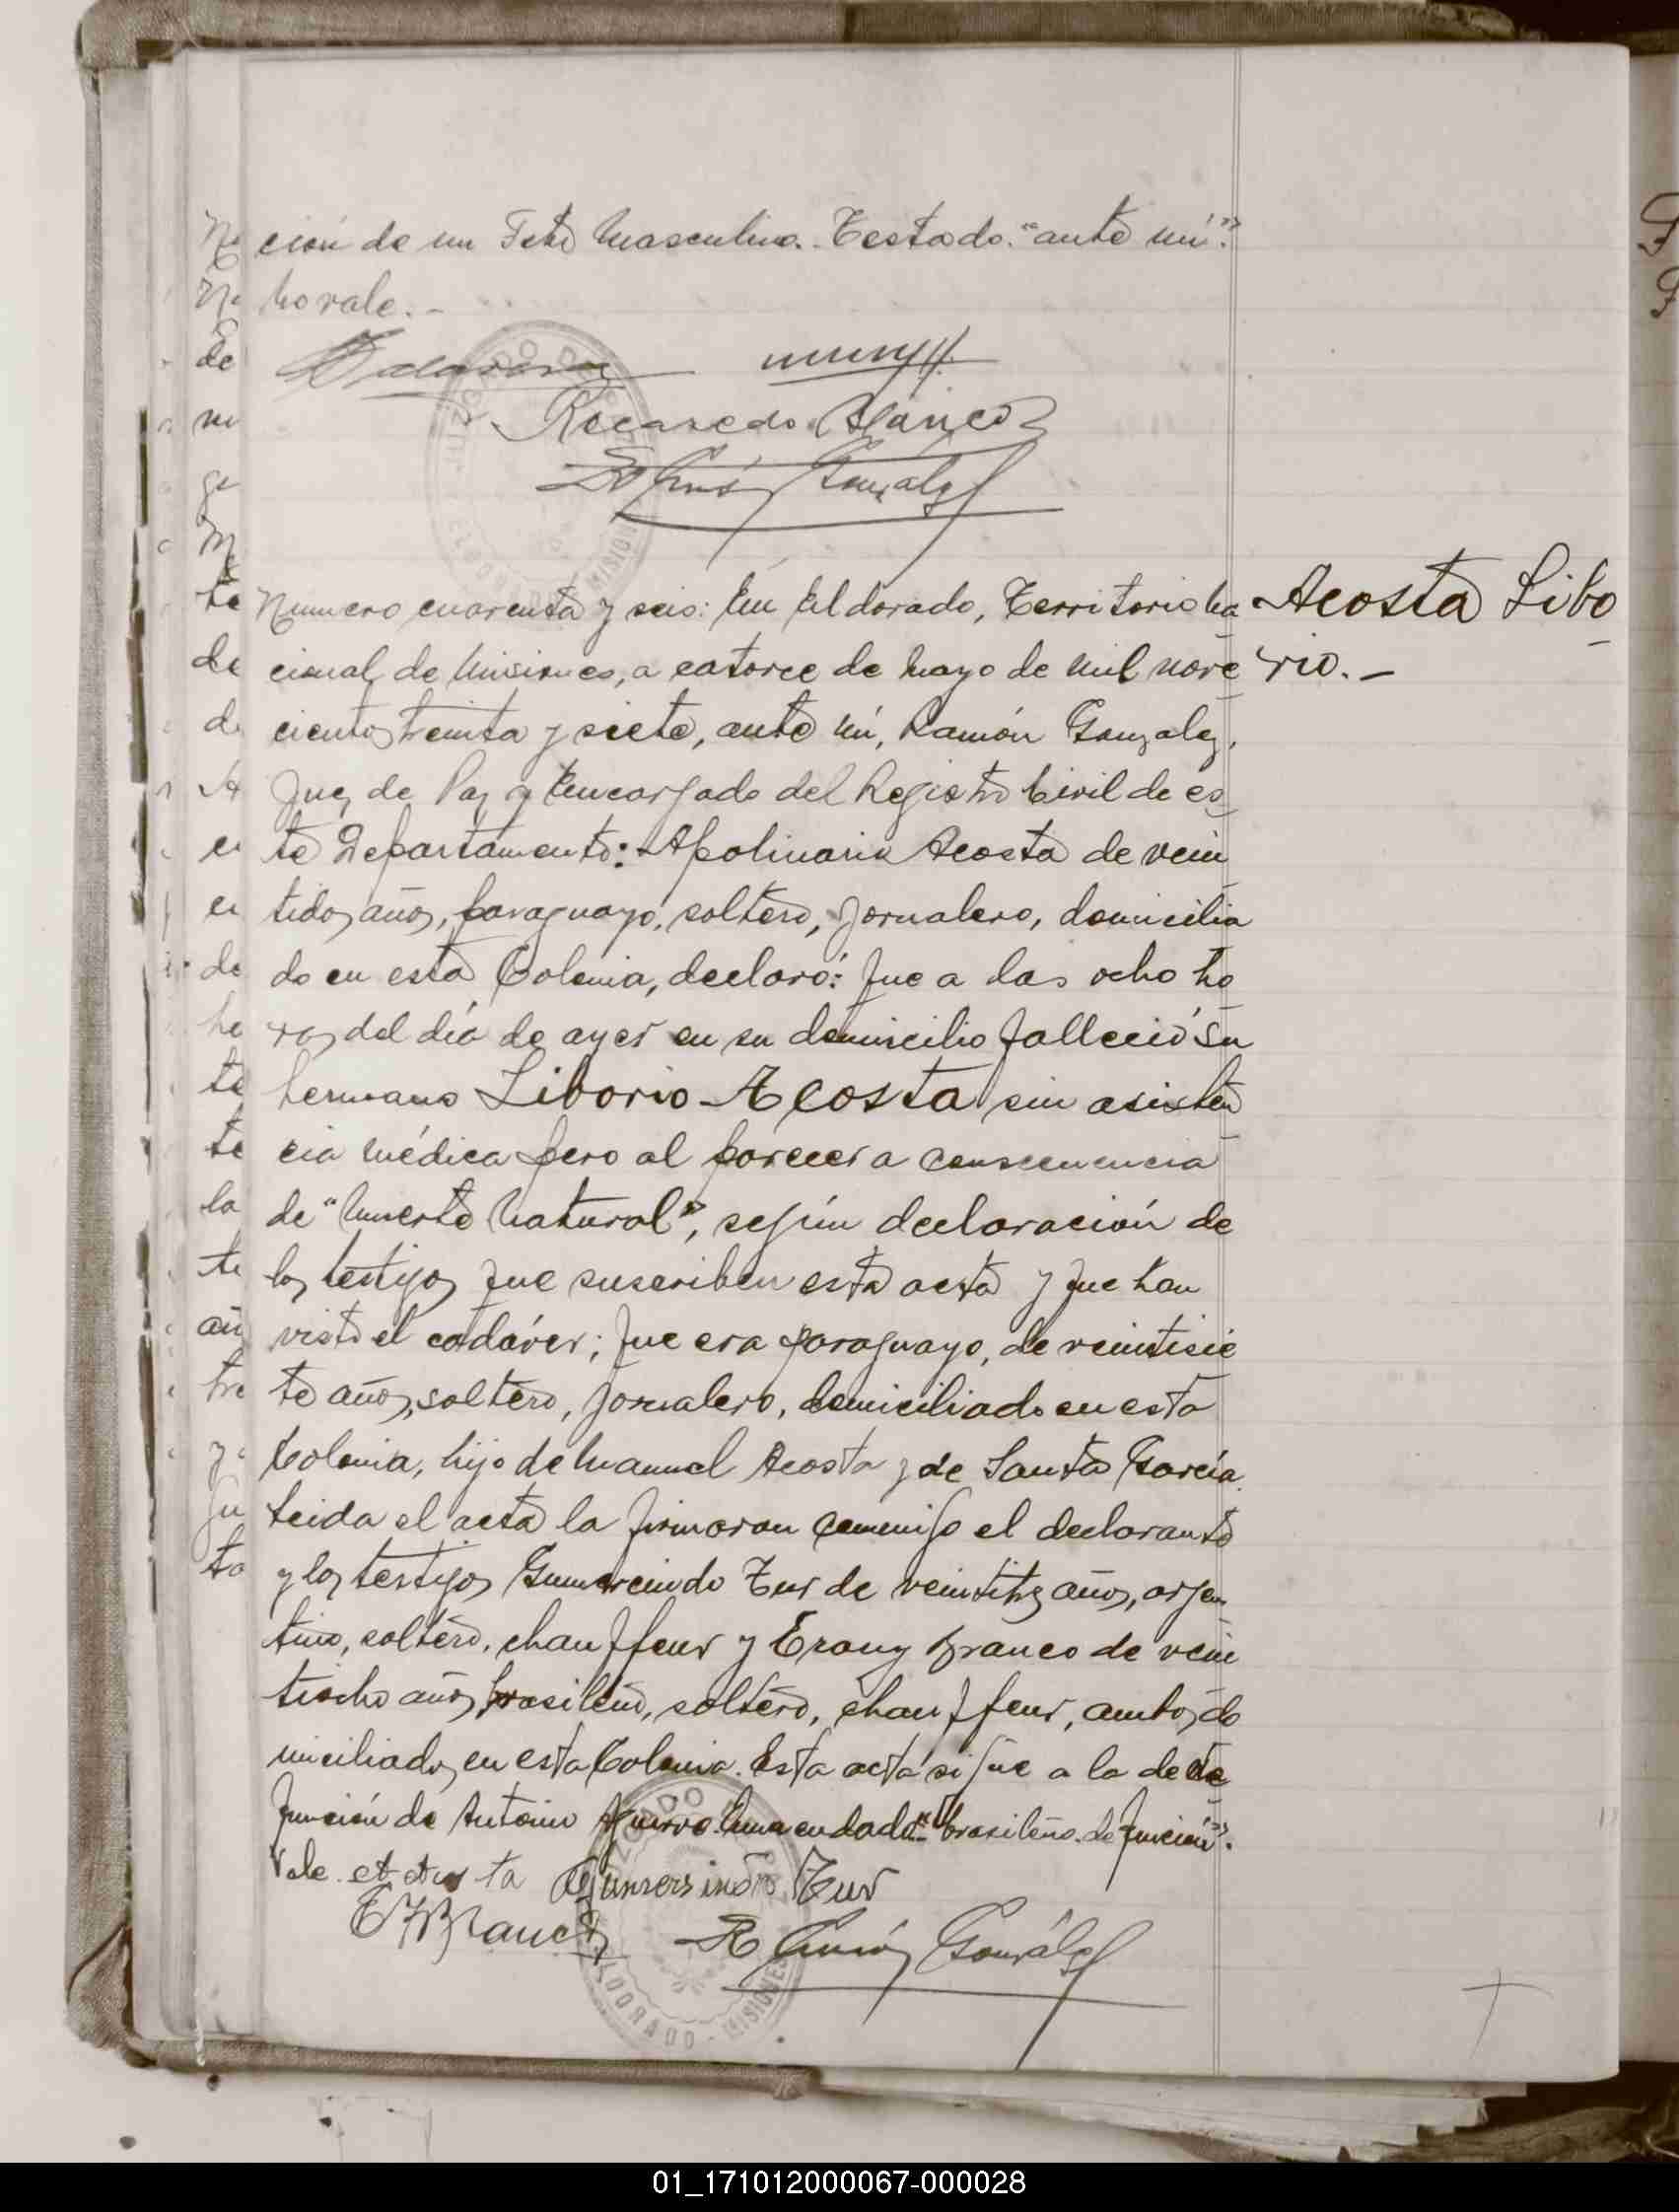 ción de un Feto Masculino.- Testado: "ante mí":
No vale.-
Recaredo
Ramón González
Número cuarenta y seis: En Eldorado, Territorio Na
cional de Misiones, a catorce de Mayo de mil nove
cientos treinta y siete, ante mí, Ramón Gonzalez,
Juez de Paz y Encargado del Registro Civil de es
te Departamento: Apolinario Acosta de vein
tidos años, paraguayo, soltero, jornalero, domicilia
do en esta Colonia, declaró: Que a las ocho ho
ras del día de ayer en su domicilio falleció su
hermano Liborio Acosta sin asisten
cia médica pero al parecer a consecuencia
de "Muerte Natural", según declaración de
los testigos que suscriben esta acta y que han
visto el cadáver; que era paraguayo, de veintisie
te años, soltero, jornalero, domiciliado en esta
Colonia, hijo de Manuel Acosta y de Santa García.
Leida el acta la firmaron conmigo el declarante
y los testigos Gumercindo Tur de veintitres años, argen
tino, soltero, chauffeur y Erony Branco de vein
tiocho años, brasileño, soltero, chauffeur, ambos do
miciliados en esta Colonia. Esta acta sigue a la de de
función de Antonio Enmendado: "brasileño. defunción".
Vale.
Gumersindo Tur
E F Branco
Ramón González
Acosta Libo
rio.-
JUZGADO DE
ELDORADO - MISIONES
01_171012000067-000028